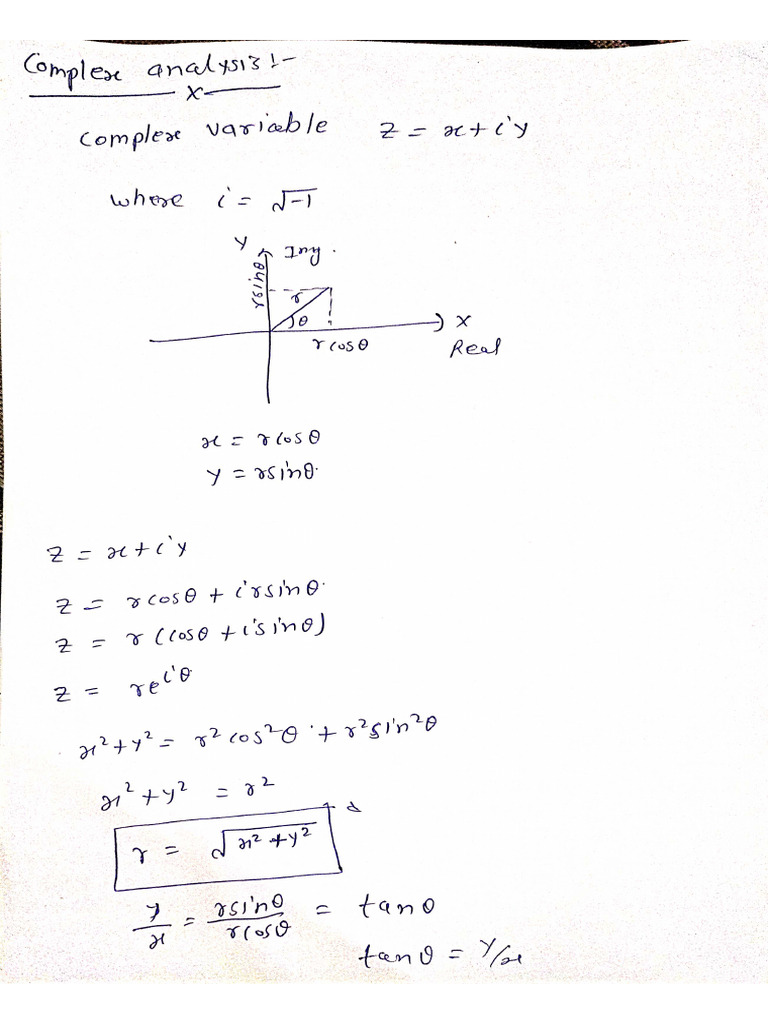 Complex analysis :-
x
Complex variable z = x + iy
where i = √-1
Y Img.
rsinθ
r
θ
X
rcosθ
Real
x = rcosθ
y = rsinθ
z = x + iy
z = rcosθ + irsinθ
z = r(cosθ + isinθ)
z = re^iθ
x² + y² = r²cos²θ + r²sin²θ
x² + y² = r²
r = √(x² + y²)
y/x = rsinθ/rcosθ = tanθ
tanθ = y/x